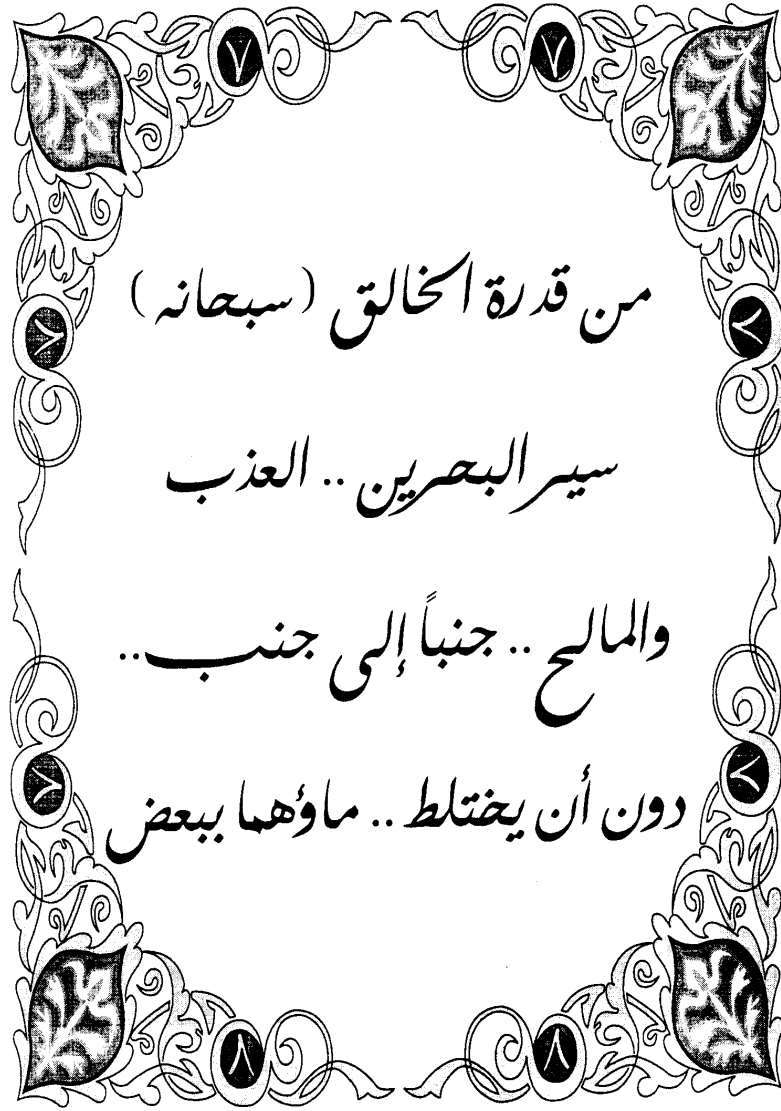 من قدرة الخالق (سبحانه)
سير البحرين .. العذب
والمالح .. جنباً إلى جنب..
دون أن يختلط .. ماؤهما ببعض